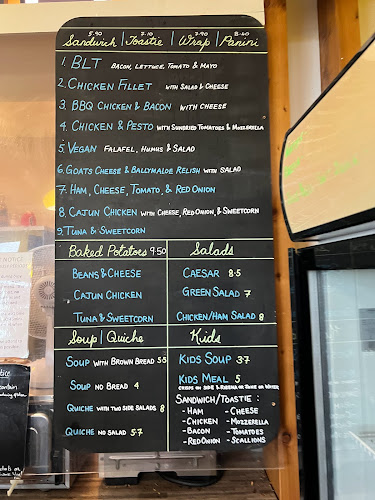 5.90 7.10 7.90 8.60
Sandwich | Toastie | Wrap | Panini
1. BLT BACON, LETTUCE, TOMATO & MAYO
2. CHICKEN FILLET WITH SALAD & CHEESE
3. BBQ CHICKEN & BACON WITH CHEESE
4. CHICKEN & PESTO WITH SUNDRIED TOMATOES & MOZZERELLA
5. VEGAN FALAFEL, HUMUS & SALAD
6. GOATS CHEESE & BALLYMALOE RELISH WITH SALAD
7. HAM, CHEESE, TOMATO, & RED ONION
8. CAJUN CHICKEN WITH CHEESE, RED ONION, & SWEETCORN
9. TUNA & SWEETCORN
Baked Potatoes 9.50
BEANS & CHEESE
CAJUN CHICKEN
TUNA & SWEETCORN
Salads
CAESAR 8.5
GREEN SALAD 7
CHICKEN/HAM SALAD 8
Soup | Quiche
SOUP WITH BROWN BREAD 5.5
SOUP NO BREAD 4
QUICHE WITH TWO SIDE SALADS 8
QUICHE NO SALAD 5.7
Kids
KIDS SOUP 3.7
KIDS MEAL 5
CRISPS ON SIDE & RIBENA OR JUICE OR WATER
SANDWICH/TOASTIE :
- HAM - CHEESE
- CHICKEN - MOZZERELLA
- BACON - TOMATOES
- RED ONION - SCALLIONS